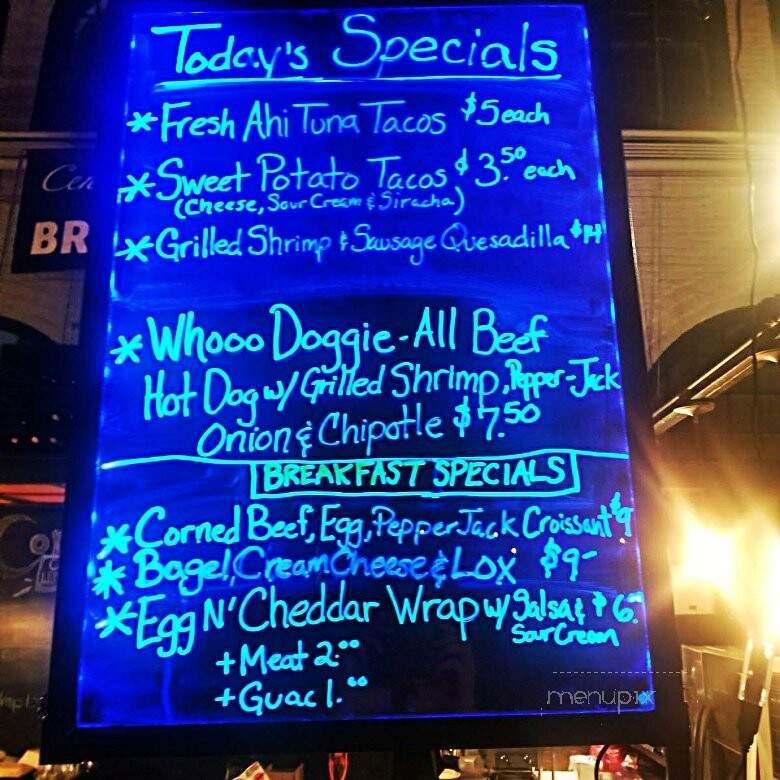 Today's Specials
*Fresh Ahi Tuna Tacos $5 each
*Sweet Potato Tacos $3.50 each
(Cheese, Sour Cream & Siracha)
*Grilled Shrimp & Sausage Quesadilla $14
*Whooo Doggie-All Beef
Hot Dog w/ Grilled Shrimp, Pepper-Jack
Onion & Chipotle $7.50
BREAKFAST SPECIALS
*Corned Beef, Egg, Pepper Jack Croissant $9
*Bagel, Cream Cheese & Lox $9-
*Egg N' Cheddar Wrap w/ Salsa & $6.
Sour Cream
+Meat 2.00
+Guac 1.00
BR
menupix